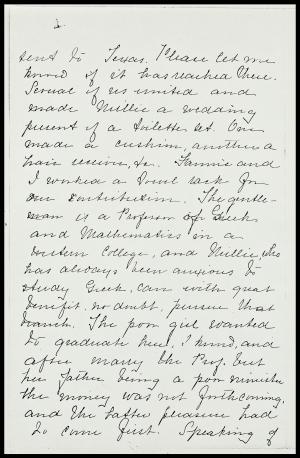 sent to Texas. Please let me
know if it has reached there.
Several of us united and
made Nillie a wedding
present of a toilette set. One
made a cushion, another a
hair receiver, &c. Fannie and
I worked a towel rack for
our contribution. The gentle-
man is a Professor of Greek
and Mathematics in a
western College, and Nillie, who
has always been anxious to
study Greek, can with great
benefit, no doubt, pursue that
branch. The poor girl wanted
to graduate here, I know, and
after marry the Prof. but
her father being a poor minister
the money was not forthcoming,
and the latter pleasure had
to come first. Speaking of